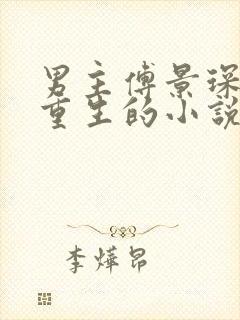 男主傅景琛
重生的小説
李燁昂